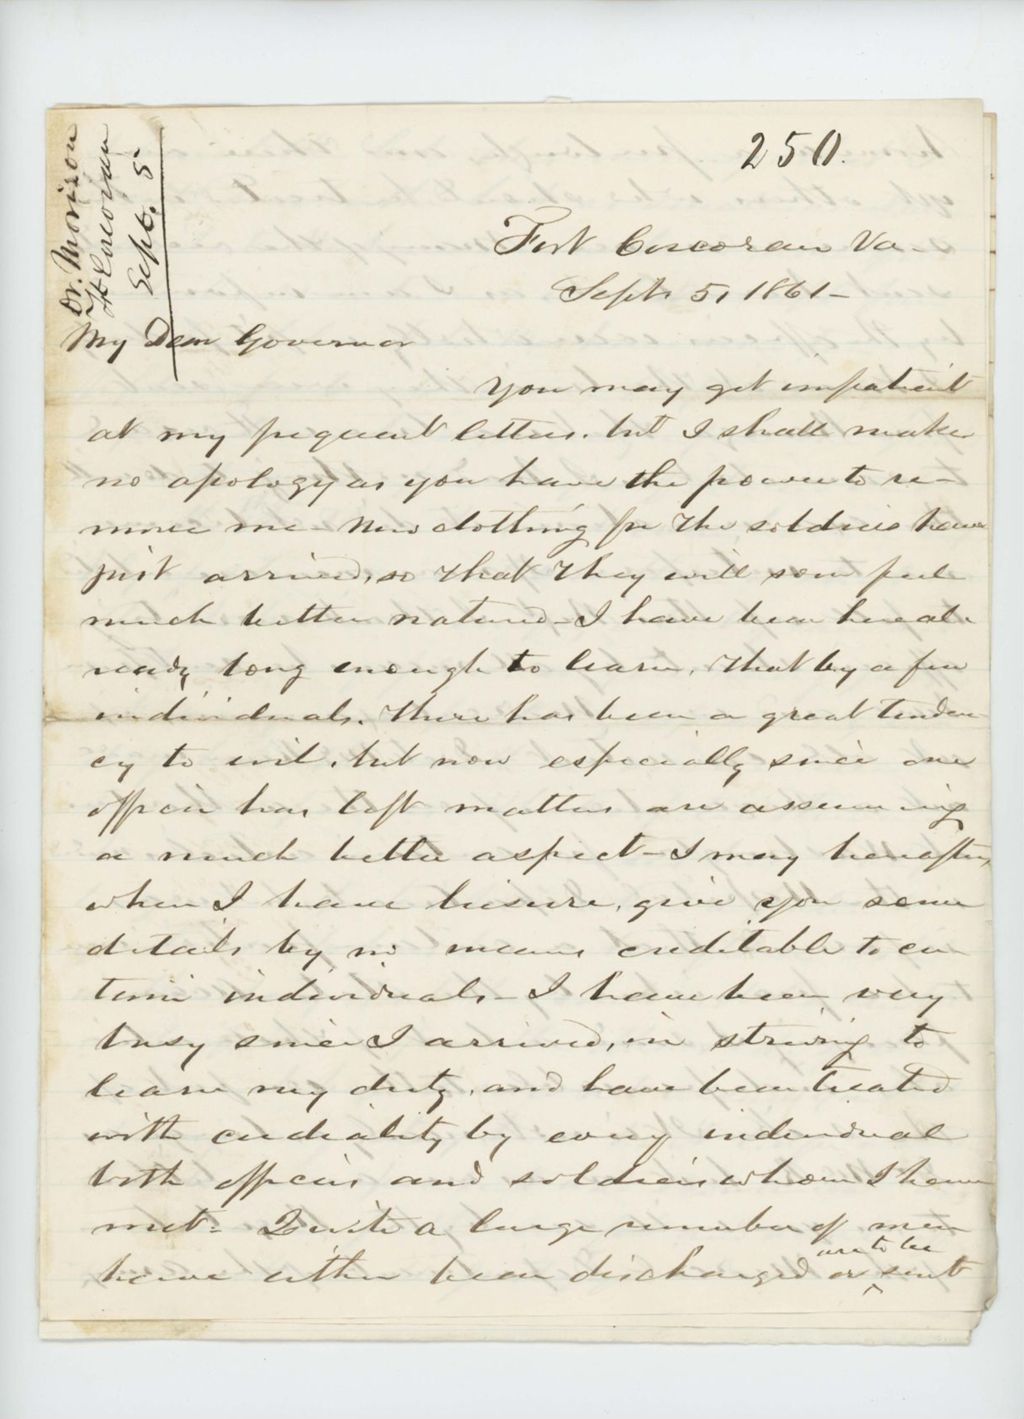 250.
Dr. Morison
Ft Corcoran
Sept. 5
Fort Corcoran Va-
Sept 5, 1861-
My Dear Governor
You may get impatient
at my frequent letters. but I shall make
no apology as you have the power to re-
move me - New clothing for the soldiers have
just arrived, so that they will soon feel
much better natured - I have been here al-
ready long enough to learn, that by a few
individuals. there has been a great tenden
cy to evil. but now especially since one
officer has left matters are assuming
a much better aspect - I may hereafter,
when I have leisure, give you some
details by no means creditable to cer
tain individuals - I have been very
busy since I arrived, in striving to
learn my duty, and have been treated
with cordiality by every individual
both officers and soldiers whom I have
met. Quite a large number of men
have either been discharged or ^ are to be sent